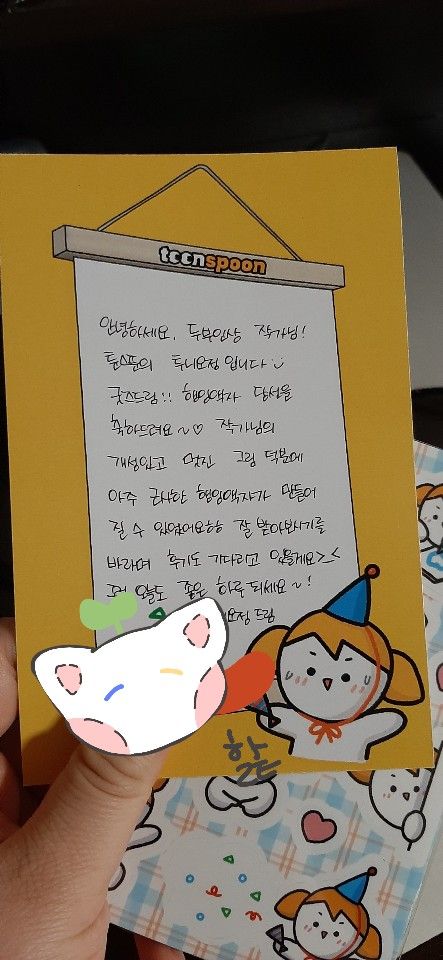 toonspoon
안녕하세요, 두부인상 작가님!
툰스푼의 투니요정입니다
굿즈드림!! 행잉액자 달성을
축하드려요~♡ 작가님의
개성있고 멋진 그림 덕분에
아주 근사한 행잉액자가 만들어
질 수 있었어요ㅎㅎ 잘 받아보시기를
바라며 후기도 기다리고 있을게요>_<
그럼 오늘도 좋은 하루 되세요~!
요정 드림